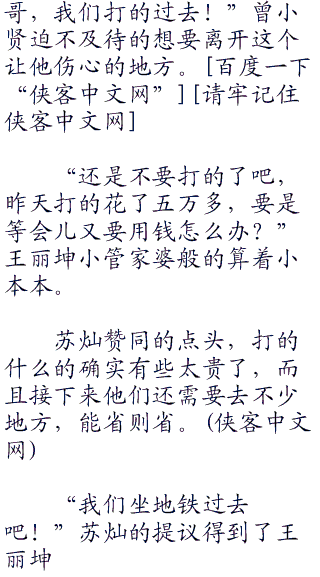 哥，我们打的过去！”曾小
贤迫不及待的想要离开这个
让他伤心的地方。[百度一下
“侠客中文网”][请牢记住
侠客中文网]
“还是不要打的了吧，
昨天打的花了五万多，要是
等会儿又要用钱怎么办？”
王丽坤小管家婆般的算着小
本本。
苏灿赞同的点头，打的
什么的确实有些太贵了，而
且接下来他们还需要去不少
地方，能省则省。(侠客中文
网)
“我们坐地铁过去
吧！”苏灿的提议得到了王
丽坤